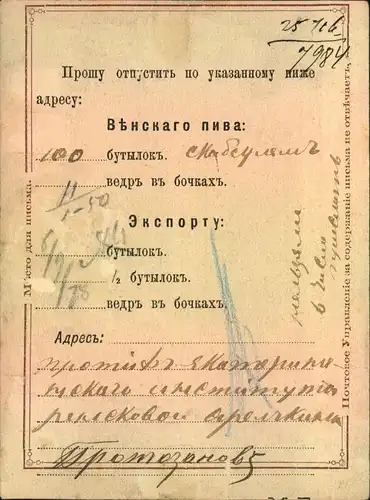 7984
Прошу отпустить по указанному ниже
адресу:
Вѣнскаго пива:
100 бутылокъ.
ведръ въ бочкахъ.
Экспорту:
бутылокъ.
½ бутылокъ.
ведръ въ бочкахъ.
Адресъ:
противъ Екатеринин-
скаго института
Протозановъ
Мѣсто для письма.
Почтовое Управленіе за содержаніе письма не отвѣчаетъ.